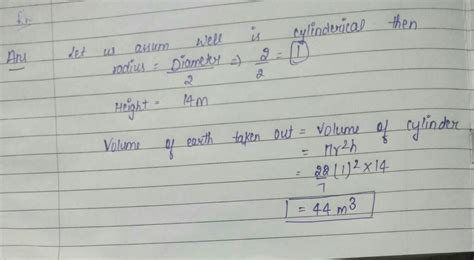 Ans Let us assum well is cylinderical then
radius = Diameter/2 => 2/2 = 1
Height = 14m
Volume of earth taken out = Volume of cylinder
= πr²h
= 22/7 (1)² × 14
= 44 m³